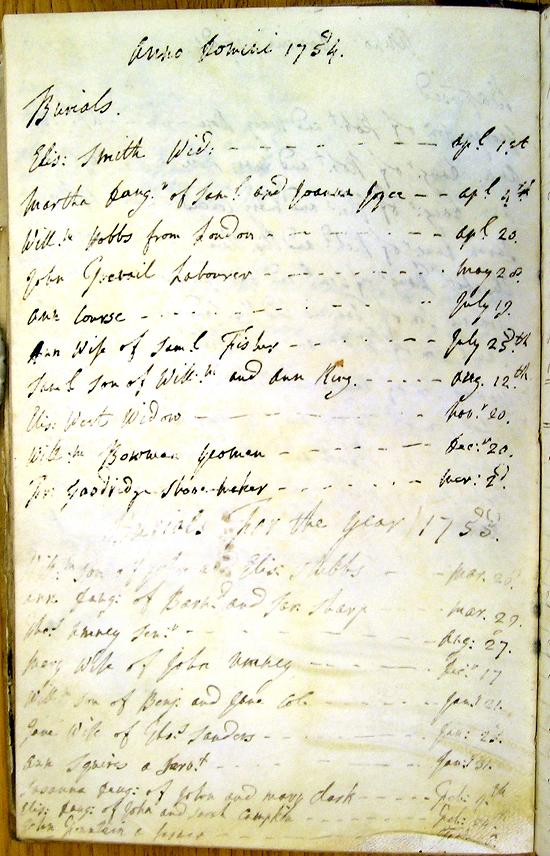 Anno Domini 1754.
Burials.
Eliz: Smith Wid: apl. 1st
Martha Daugr. of Saml. and Joanna Joyce apl. 4th
Will:m Hobbs from London apl. 20.
John Labourer may 28.
Ann Course July 19.
Ann Wife of Saml. Fisher July 25th
Saml. Son of Will:m and Ann King. aug. 12th
Eliz: West Widow Nov:r 20.
Will:m Bowman Yeoman Dec:r 20.
Goodridge mar: 2d.
Burials for the year 1755.
Will:m Son of John and Eliz: Hobbs mar. 26.
Ann Daug: of and Sharp mar. 29.
Umney Sen:r Aug: 27.
Mary Wife of John Umney Dec:r 17
Will: Son of Benj: and Jane Cole Jan: 21.
Jane Wife of Tho:s Sanders Jan: 23.
Ann Squire a Serv:t Jan: 31.
Susanna Daug: of John and mary Clark Feb: 9th
Eliz: Daug: of John and Feb:
John Fountain a